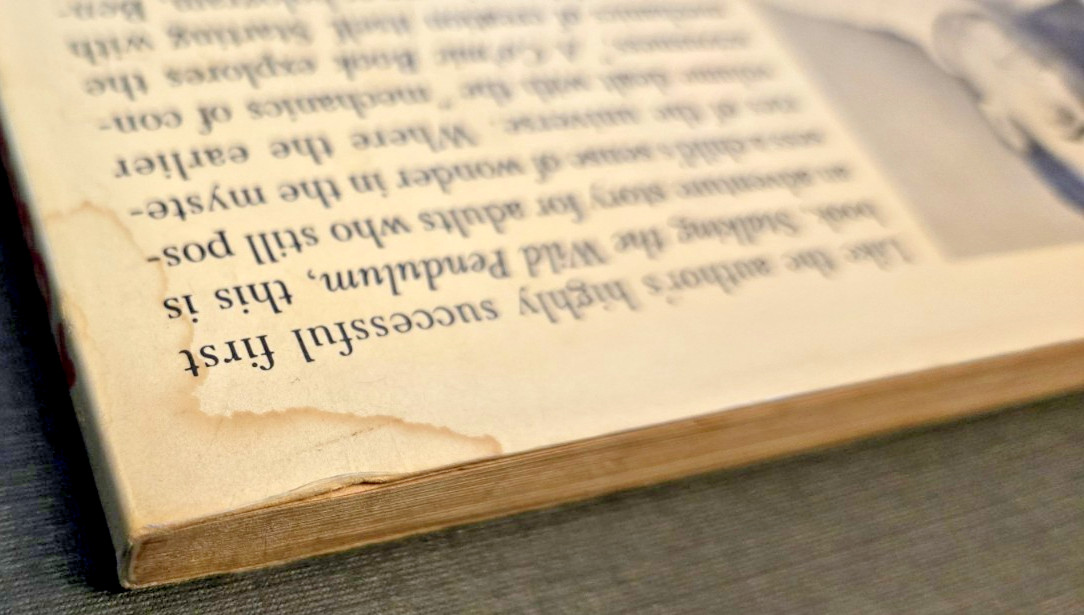 Like the author's highly successful first
book, Stalking the Wild Pendulum, this is
an adventure story for adults who still pos-
sess a child's sense of wonder in the myste-
ries of the universe. Where the earlier
volume dealt with the "mechanics of con-
A Cosmic Book explores the
mechanics of creation itself. Starting with